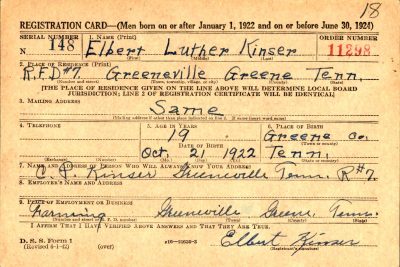 18
REGISTRATION CARD—(Men born on or after January 1, 1922 and on or before June 30, 1924)
SERIAL NUMBER 1. NAME (Print) ORDER NUMBER
148 Elbert Luther Kinser 11298
(First) (Middle) (Last)
2. PLACE OF RESIDENCE (Print)
R.F.D #7. Greeneville Greene Tenn.
(Number and street) (Town, township, village, or city) (County) (State)
[THE PLACE OF RESIDENCE GIVEN ON THE LINE ABOVE WILL DETERMINE LOCAL BOARD
JURISDICTION; LINE 2 OF REGISTRATION CERTIFICATE WILL BE IDENTICAL]
3. MAILING ADDRESS
Same
(Mailing address if other than place indicated on line 2. If same insert word same)
4. TELEPHONE 5. AGE IN YEARS 6. PLACE OF BIRTH
19 Greene Co.
DATE OF BIRTH (Town or county)
Oct. 21 1922 Tenn.
(Exchange) (Number) (Mo.) (Day) (Yr.) (State or country)
7. NAME AND ADDRESS OF PERSON WHO WILL ALWAYS KNOW YOUR ADDRESS
Kinser Greeneville Tenn. R#7.
8. EMPLOYER'S NAME AND ADDRESS
9. PLACE OF EMPLOYMENT OR BUSINESS
Farming Greeneville Greene. Tenn.
(Number and street or R. F. D. number) (Town) (County) (State)
I AFFIRM THAT I HAVE VERIFIED ABOVE ANSWERS AND THAT THEY ARE TRUE.
D. S. S. Form 1 Elbert Kinser
(Revised 6-1-42) (over) (Registrant's signature)